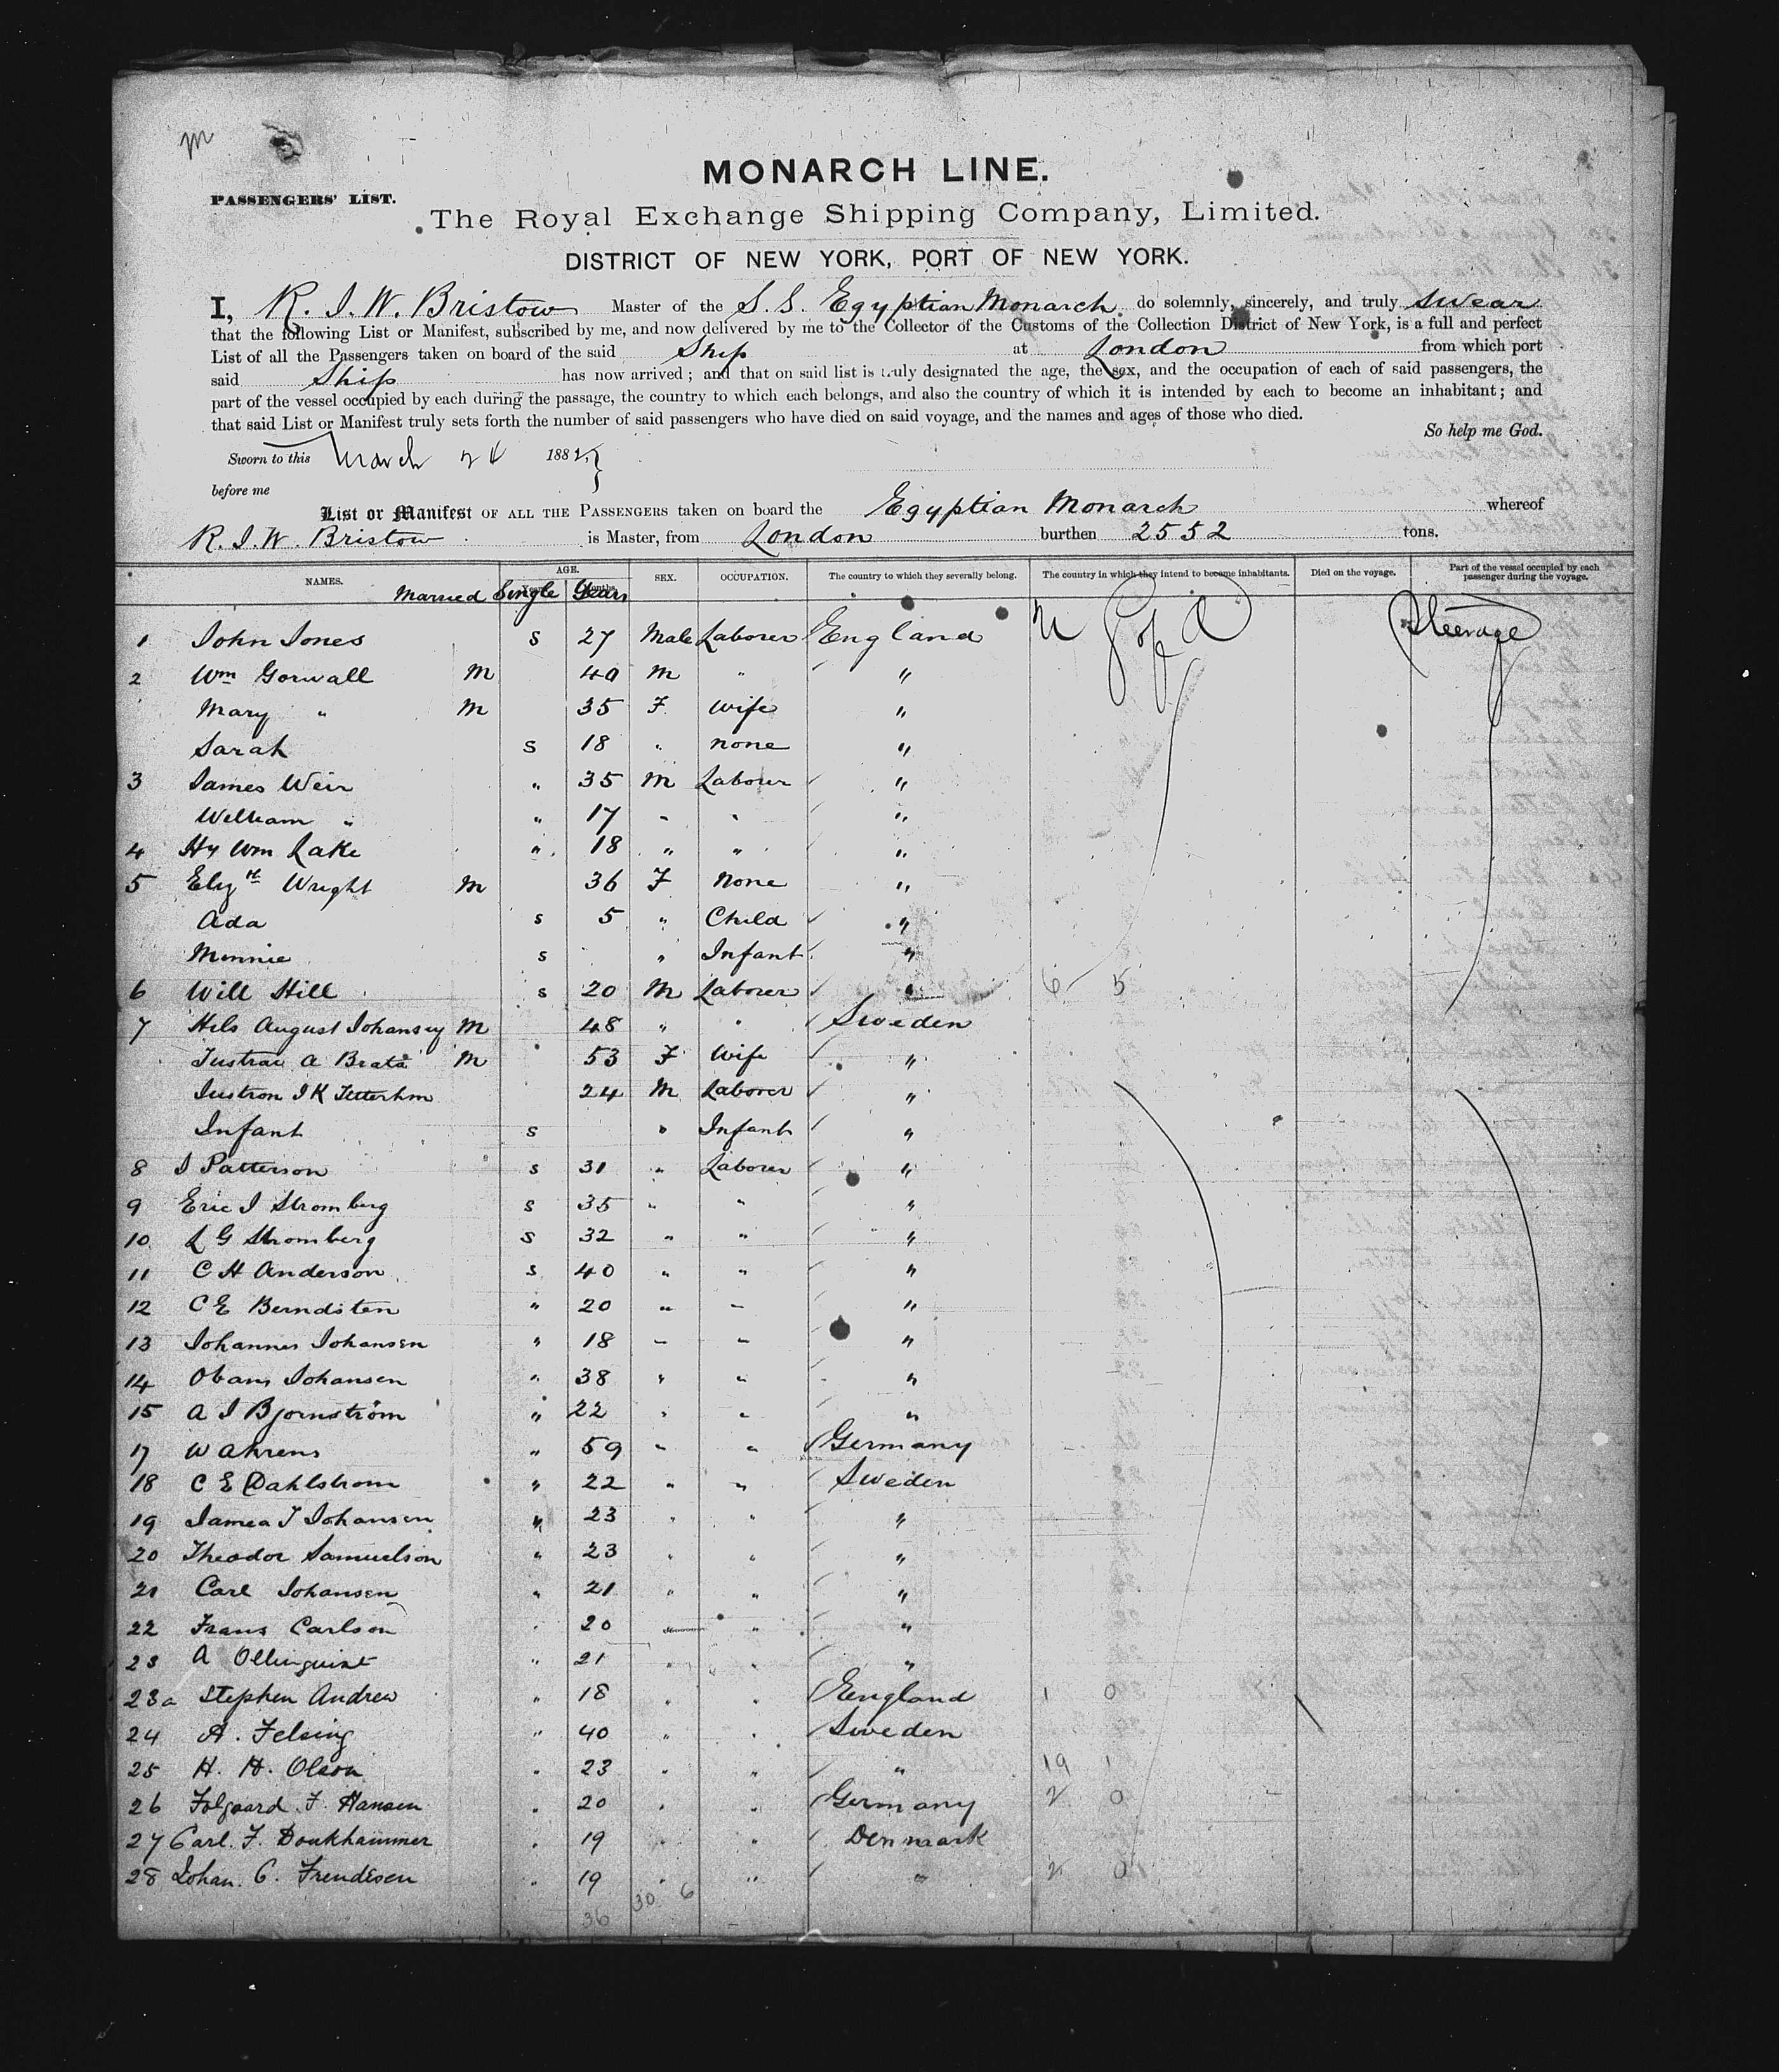 m
MONARCH LINE.
PASSENGERS' LIST.
The Royal Exchange Shipping Company, Limited.
DISTRICT OF NEW YORK, PORT OF NEW YORK.
I, R. J. W. Bristow Master of the S. S. Egyptian Monarch do solemnly, sincerely, and truly swear
that the following List or Manifest, subscribed by me, and now delivered by me to the Collector of the Customs of the Collection District of New York, is a full and perfect
List of all the Passengers taken on board of the said Ship at London from which port
said Ship has now arrived; and that on said list is truly designated the age, the sex, and the occupation of each of said passengers, the
part of the vessel occupied by each during the passage, the country to which each belongs, and also the country of which it is intended by each to become an inhabitant; and
that said List or Manifest truly sets forth the number of said passengers who have died on said voyage, and the names and ages of those who died.
So help me God.
Sworn to this March 188
before me
List or Manifest OF ALL THE PASSENGERS taken on board the Egyptian Monarch whereof
R. J. W. Bristow is Master, from London burthen 2552 tons.
NAMES. AGE. SEX. OCCUPATION. The country to which they severally belong. The country in which they intend to become inhabitants. Died on the voyage. Part of the vessel occupied by each passenger during the voyage.
Married Single Years
1 John Jones s 27 Male Laborer England U S of A Steerage
2 Wm Gorwall M 40 M " "
Mary " M 35 F Wife "
Sarah s 18 " none "
3 James Weir " 35 M Labourer "
William " " 17 " " "
4 Hy Wm Lake " 18 " " "
5 Elizth Wright M 36 F None "
Ada s 5 " Child "
Minnie s " Infant "
6 Will Hill s 20 M Laborer " 6 5
7 Nils August Johansen M 48 " " Sweden
A Brata M 53 F Wife "
J K 24 M Laborer "
Infant s " Infant "
8 J Patterson s 31 " Laborer "
9 Eric J Stromberg s 35 " " "
10 L G Stromberg s 32 " " "
11 C H Anderson s 40 " " "
12 C E Berndsten " 20 " " "
13 Johannes Johansen " 18 " " "
14 Johansen " 38 " " "
15 A J Bjornström " 22 " " "
17 W Ahrens " 59 " " Germany
18 C E Dahlstrom " 22 " " Sweden
19 James J Johansen " 23 " " "
20 Theodor Samuelson " 23 " " "
21 Carl Johansen " 21 " " "
22 Frans Carlson " 20 " " "
23 A Ollinquist " 21 " " "
23a Stephen Andrew " 18 " " England 1 0
24 A. Felsing " 40 " " Sweden
25 H. H. Olson " 23 " " " 19 1
26 Folgaard F. Hansen " 20 " " Germany 2 0
27 Carl F. Donkhammer " 19 " " Denmark
28 Johan C. Frendesen " 19 " " " 2 0
36 30 6